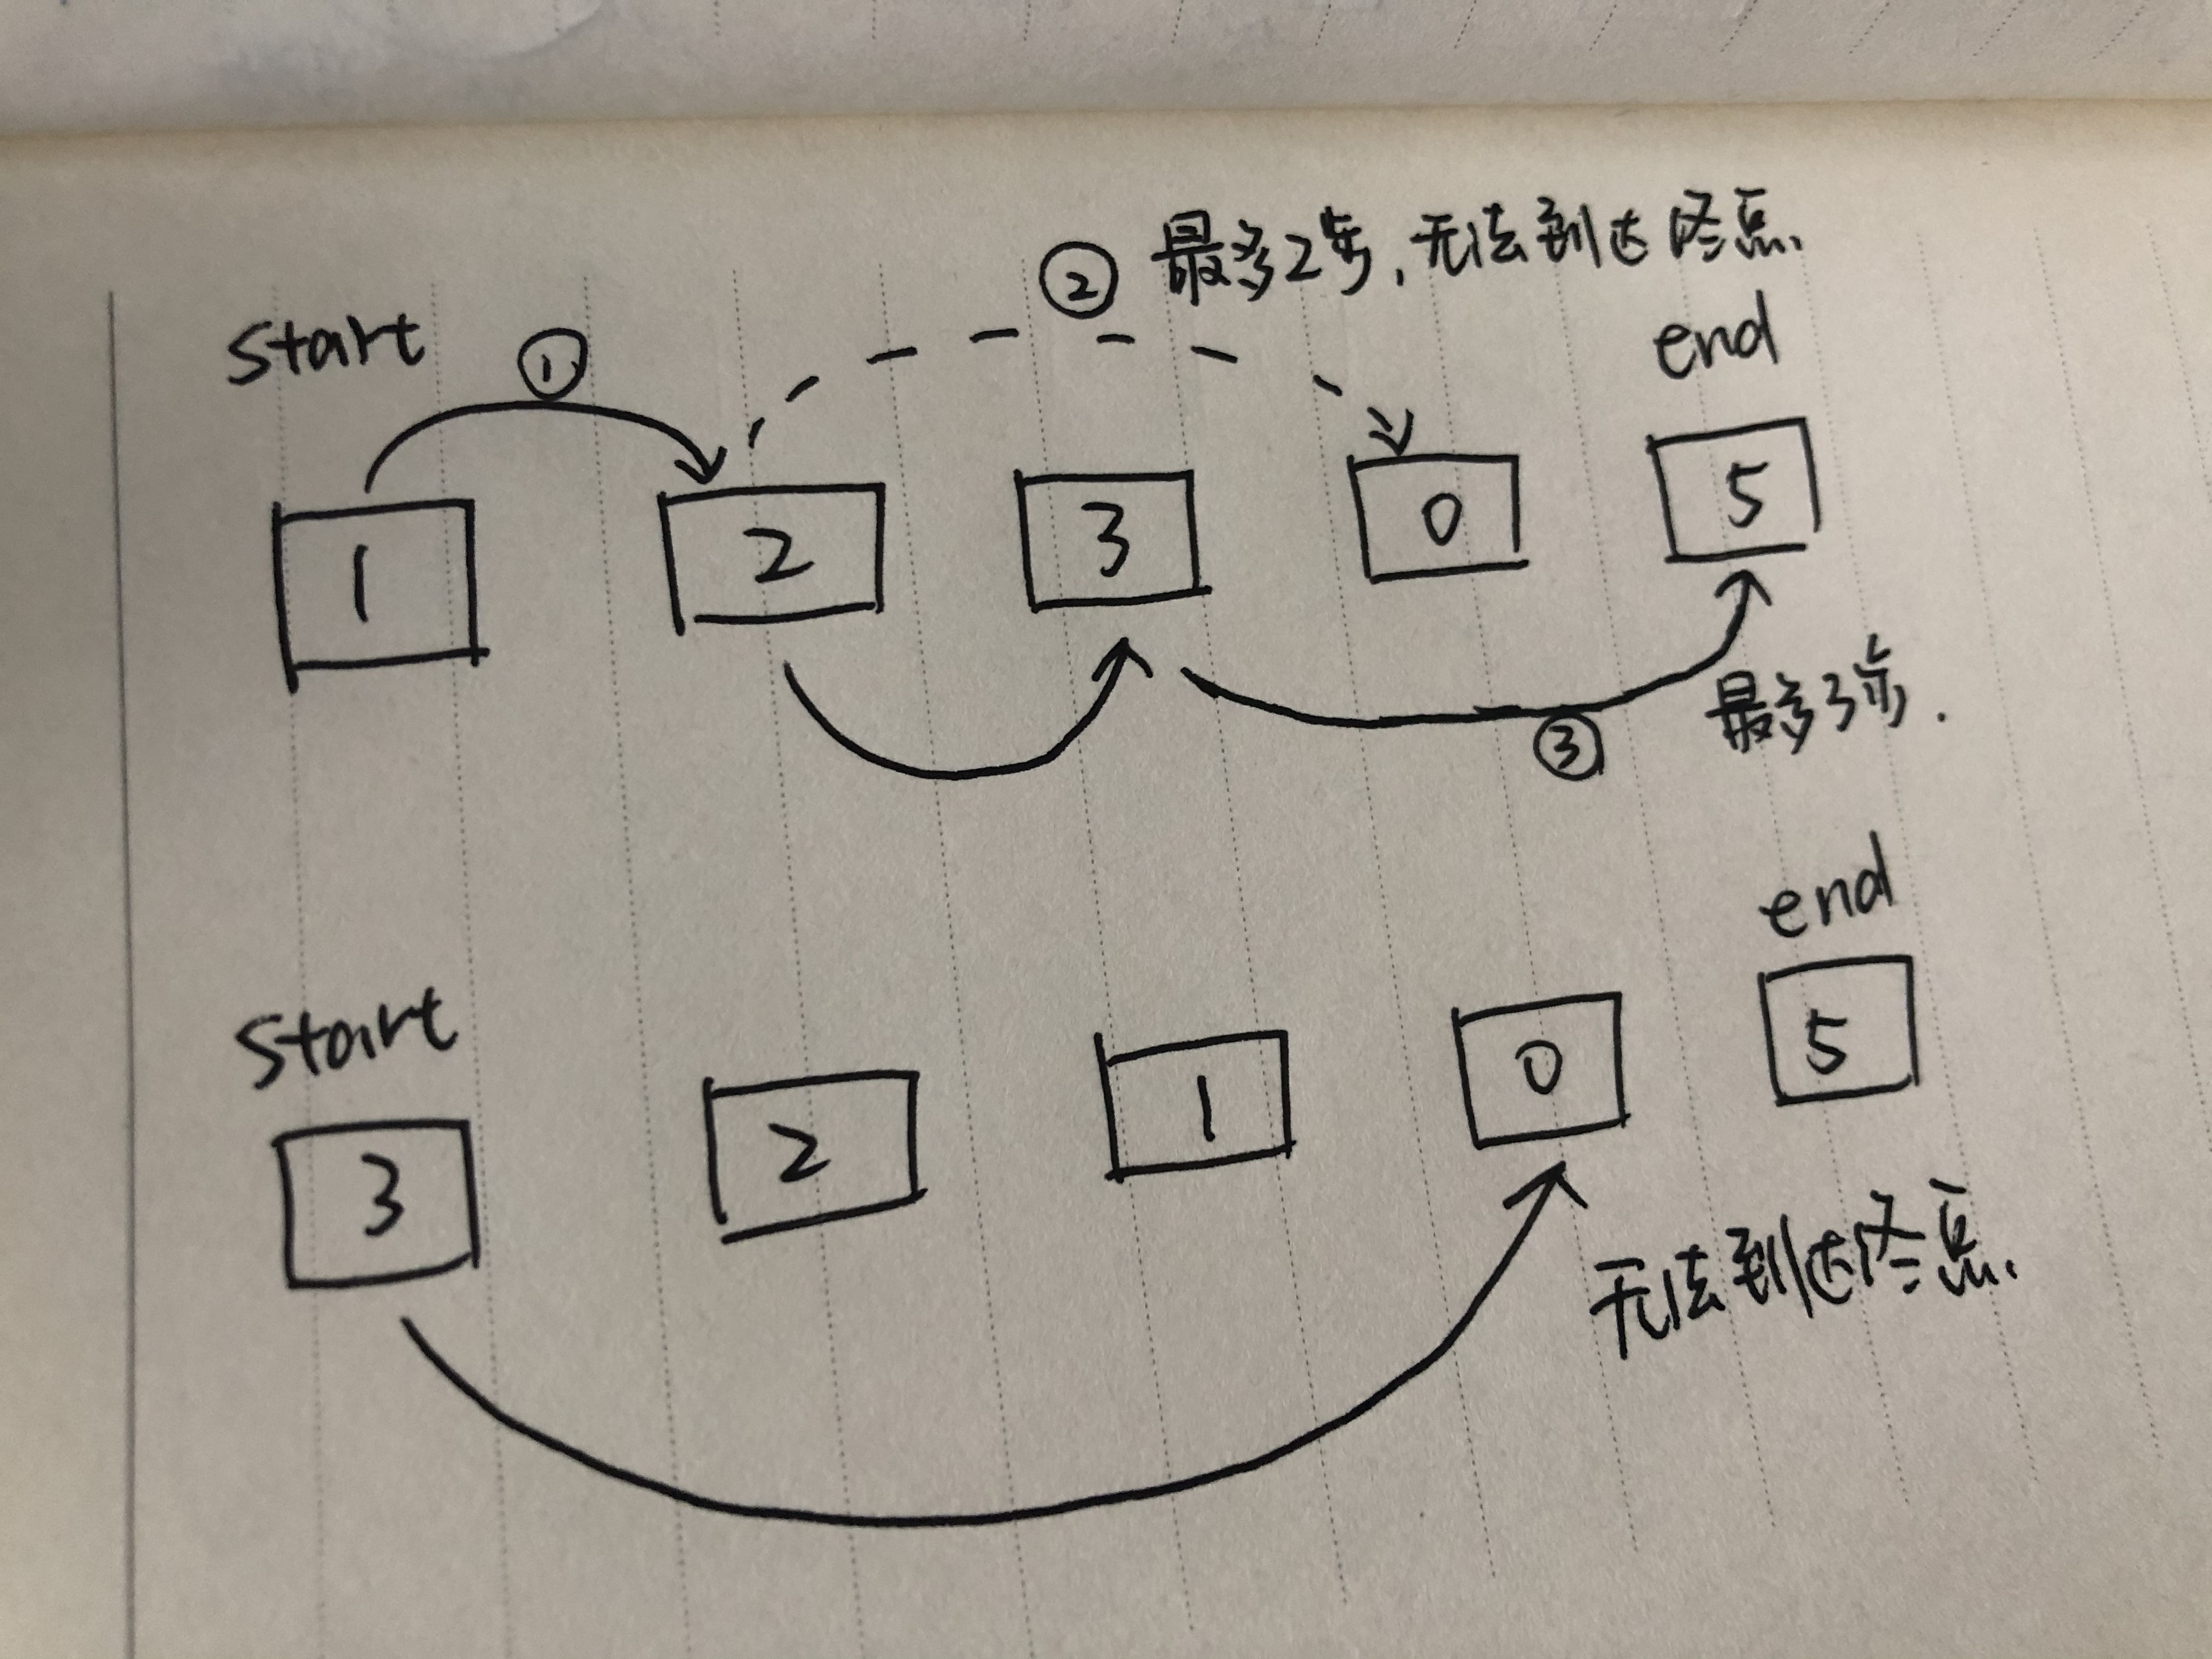 ② 最多2步,无法到达终点.
start ① end
1 2 3 0 5
③ 最多3步.
end
start
3 2 1 0 5
无法到达终点.